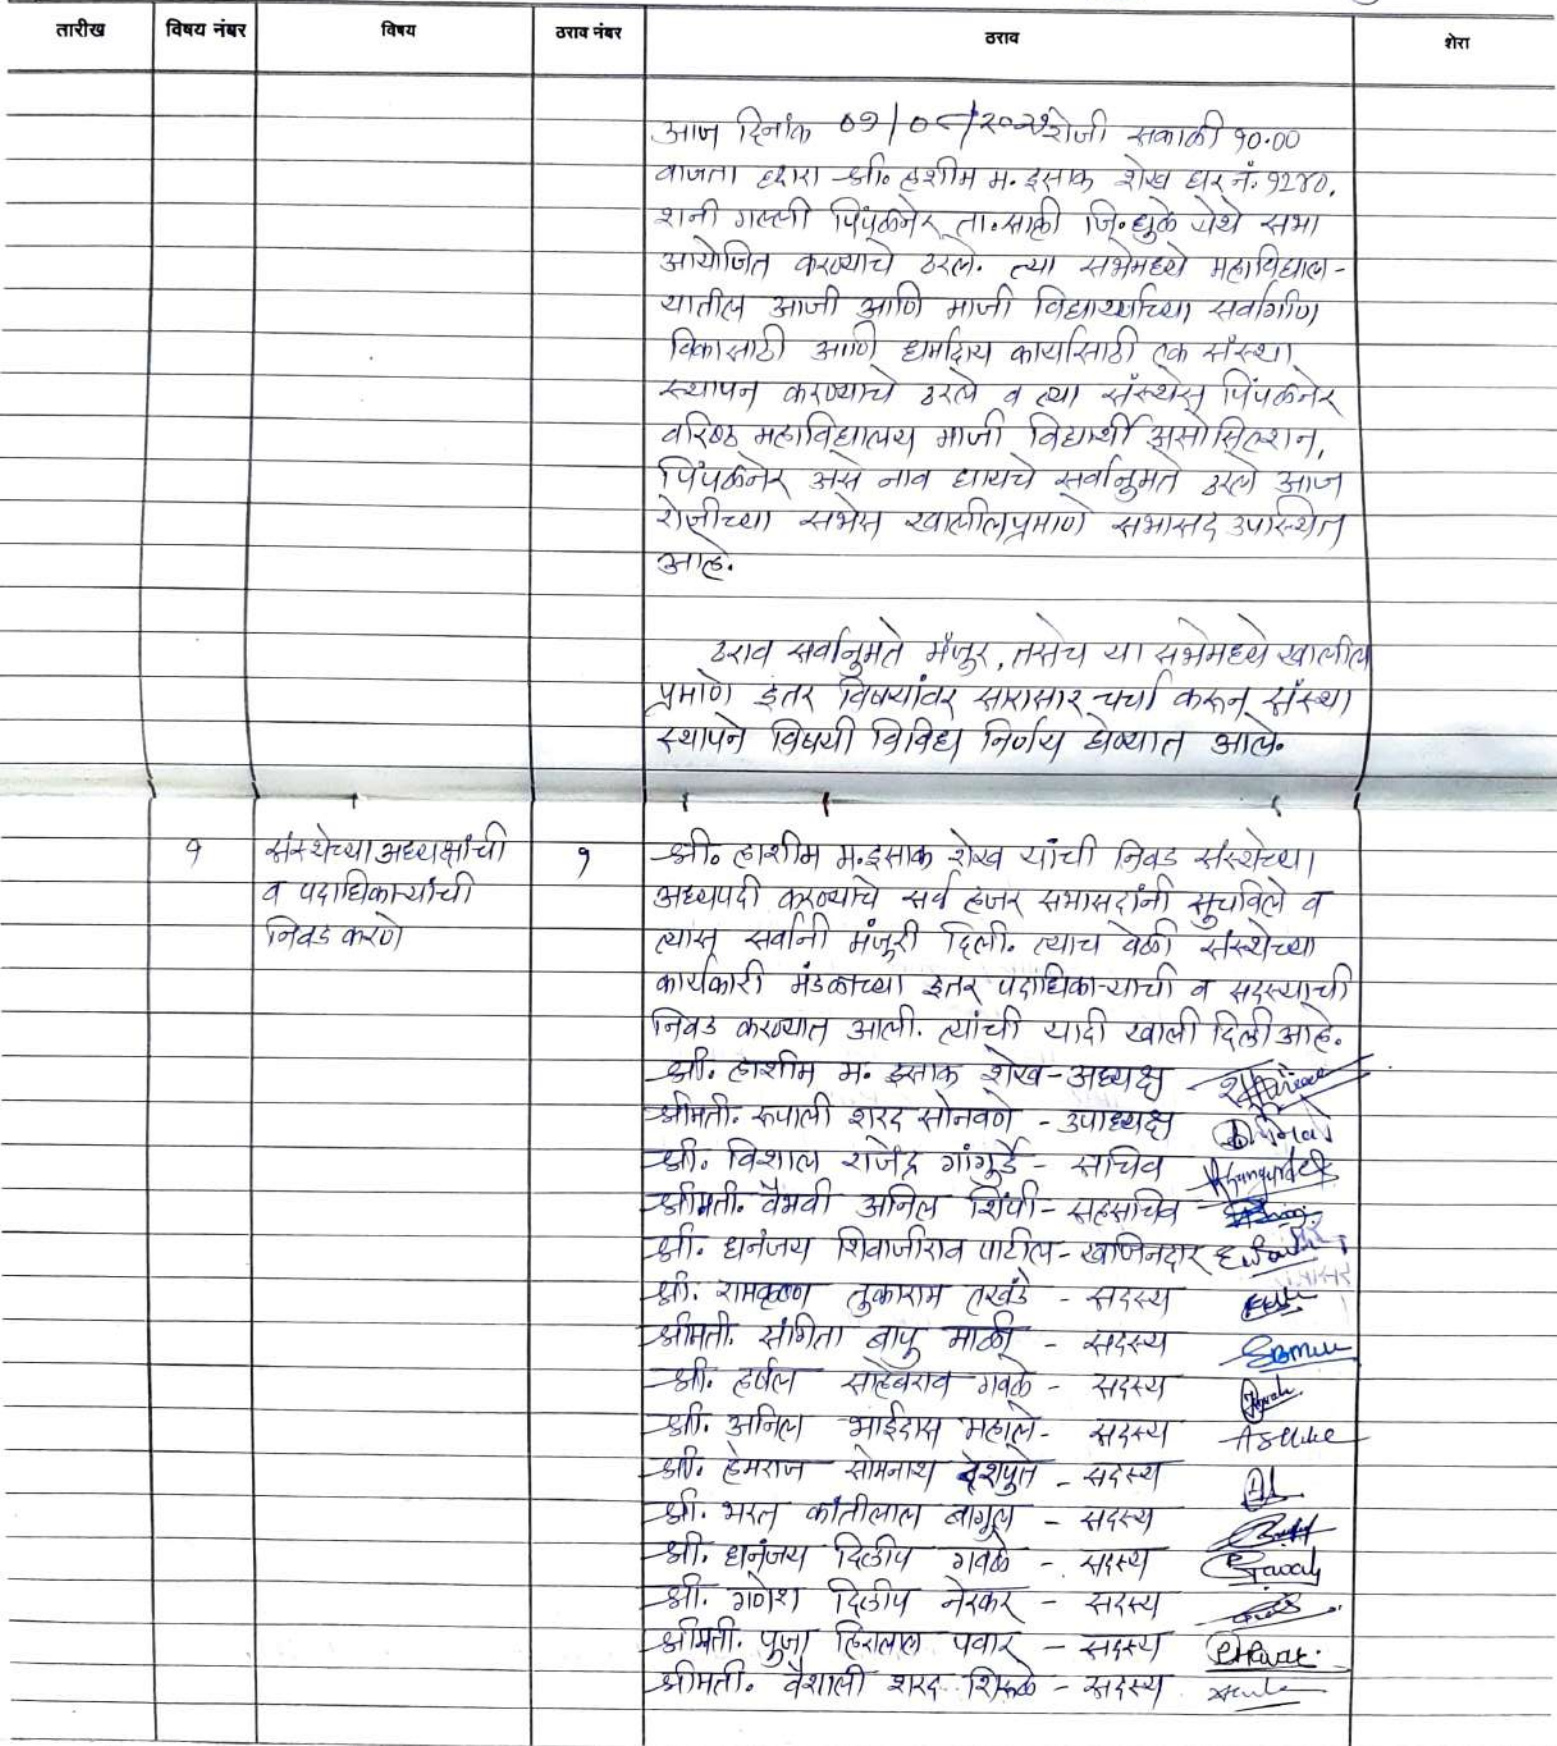 तारीख विषय नंबर विषय ठराव नंबर ठराव शेरा
आज दिनांक रोजी सकाळी १०.००
वाजता द्वारा श्री. हाशीम म. इसाक शेख घर नं. १२४०,
शनी गल्ली पिंपळनेर ता. साक्री जि. धुळे येथे सभा
आयोजित करण्याचे ठरले. त्या सभेमध्ये महाविद्याल-
यातील आजी आणि माजी विद्यार्थ्यांच्या सर्वांगीण
विकासाठी आणि धर्मादाय कार्यासाठी एक संस्था
स्थापन करण्याचे ठरले व त्या संस्थेस पिंपळनेर
वरिष्ठ महाविद्यालय माजी विद्यार्थी असोसिएशन,
पिंपळनेर असे नाव द्यायचे सर्वानुमते ठरले आज
रोजीच्या सभेस खालीलप्रमाणे सभासद उपस्थित
आहे.
ठराव सर्वानुमते मंजुर, तसेच या सभेमध्ये खालील
प्रमाणे इतर विषयांवर सारासार चर्चा करून संस्था
स्थापने विषयी विविध निर्णय घेण्यात आले.
१ संस्थेच्या अध्यक्षांची १ श्री. हाशीम म. इसाक शेख यांची निवड संस्थेच्या
व पदाधिकाऱ्यांची अध्यपदी करण्याचे सर्व हजर सभासदांनी सुचविले व
निवड करणे त्यास सर्वांनी मंजुरी दिली. त्याच वेळी संस्थेच्या
कार्यकारी मंडळाच्या इतर पदाधिकाऱ्याची व सदस्याची
निवड करण्यात आली. त्यांची यादी खाली दिली आहे.
श्री. हाशीम म. इसाक शेख - अध्यक्ष
श्रीमती. रूपाली शरद सोनवणे - उपाध्यक्ष
श्री. विशाल राजेंद्र गांगुर्डे - सचिव
श्रीमती. वैभवी अनिल शिंपी - सहसचिव
श्री. धनंजय शिवाजीराव पाटील - खजिनदार
श्री. रामकृष्ण तुकाराम एखंडे - सदस्य
श्रीमती. संगिता बापु माळी - सदस्य
श्री. हर्षल साहेबराव गवळे - सदस्य
श्री. अनिल भाईदास महाले - सदस्य
श्री. हेमराज सोमनाथ देशपुते - सदस्य
श्री. भरत कांतीलाल बागुल - सदस्य
श्री. धनंजय दिलीप गवळे - सदस्य
श्री. गणेश दिलीप नेरकर - सदस्य
श्रीमती. पुजा हिरालाल पवार - सदस्य
श्रीमती. वैशाली शरद शिरूळे - सदस्य